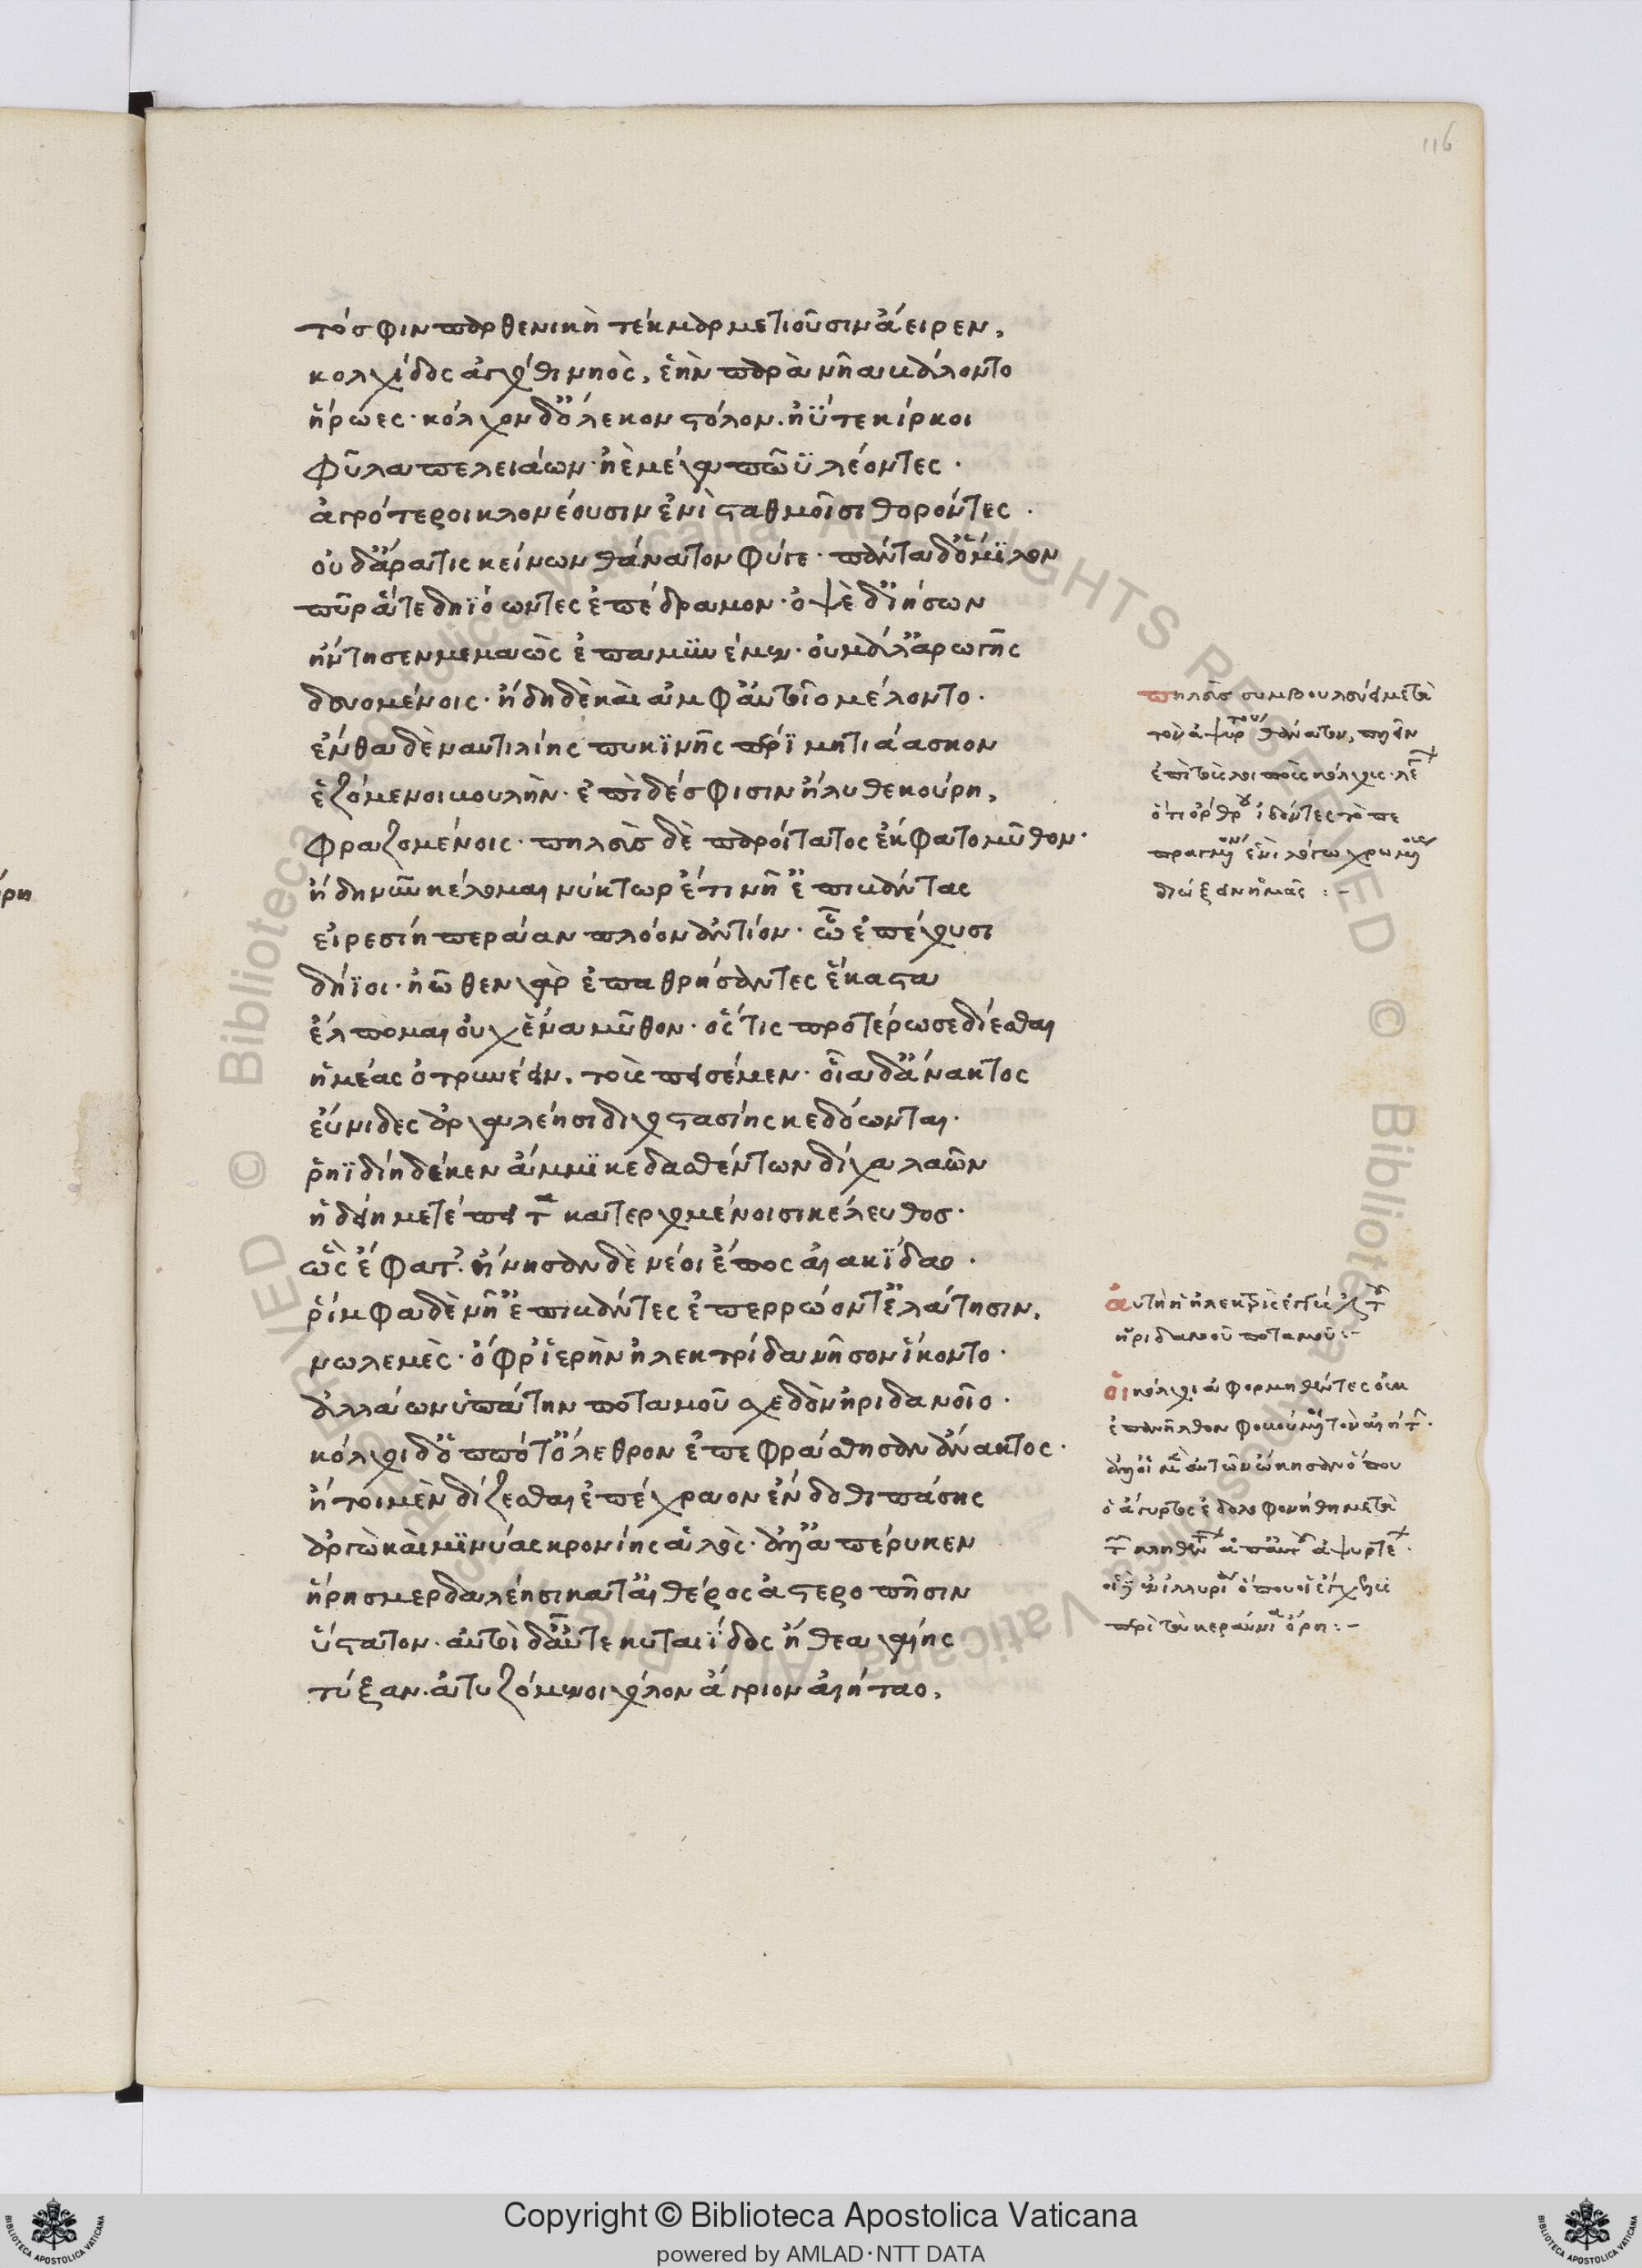 116
τό σφιν παρθενικὴ τέκμαρ μετιοῦσιν ἄειρεν,
κολχίδος ἀγχόθι νηὸς, ἑὴν παρὰ νῆα βάλοντο
ἥρωες· κόλχον δ' ὄλεκον στόλον. ἠΰτε κίρκοι
φῦλα πελειάων· ἠὲ μέγα πῶϋ λέοντες·
ἀγρότεροι κλονέουσιν ἐνὶ σταθμοῖσι θορόντες·
οὐδ' ἄρα τις κείνων θάνατον φύγε· πάντα δ' ὅμϊλον
πῦρ ἅτε δηϊόωντες ἐπέδραμον· ὀψὲ δ' ἰήσων
ἤντησεν μεμαὼς ἐπαμϋνέμεν· οὐ μάλ' ἀρωγῆς
δευομένοις· ἤδη δὲ καὶ ἀμφ' αὐτοῖο μέλοντο·
ἔνθα δὲ ναυτιλίης πυκϊνῆς περὶ μητιάασκον
ἑζόμενοι βουλὴν· ἐπὶ δέ σφισιν ἤλυθε κούρη,
φραζομένοις· πηλεὺς δὲ παροίτατος ἔκφατο μῦθον·
ἤδη νῦν κέλομαι νύκτωρ ἔτι νῆ' ἐπιβάντας
εἰρεσίη περάαν πλόον ἀντίον· ὧ ἐπέχουσι
δήϊοι· ἠῶθεν γὰρ ἐπαθρήσαντες ἕκαστα
ἔλπομαι οὐχ ἕνα μῦθον· ὅς τις προτέρωσε δίεσθαι
ἡμέας ὀτρυνέειν. τοὺς πεισέμεν· οἷα δ' ἄνακτος
εὔνιδες ἀργαλέησι διχοστασίης κεδόωνται·
ῥηϊδίη δέ κεν ἄμμϊ κεδασθέντων δίχα λαῶν
ἥδ' εἴη μετέπειτα κατερχομένοισι κέλευθος·
ὣς ἔφατ'. ἤνησαν δὲ νέοι ἔπος αἰακϊδαο·
ῥίμφα δὲ νῆ' ἐπιβάντες ἐπερρώοντ' ἐλάτησιν,
νωλεμὲς· ὄφρ' ἱερὴν ἠλεκτρίδα νῆσον ἵκοντο·
ἀλλάων ὑπάτην ποταμοῦ σχεδὸν ἠριδανοῖο·
κόλχοι δ' ὁππότ' ὄλεθρον ἐπεφράσθησαν ἄνακτος·
ἤτοι μὲν δίζεσθαι ἐπέχραον ἔνδοθι πάσης
ἀργὼ καὶ μϊνύας κρονίης ἁλὸς· ἀλλ' ἀπέρυκεν
ἥρη σμερδαλέησι κατ' αἰθέρος ἀστεροπῆσιν
ὕστατον. αὐτοὶ δ' αὖτε κυταιΐδος ἤθεα γαίης
τύξαν. ἀτυζόμενοι χόλον ἄγριον αἰήταο,
πηλεὺς συμβουλεύει μετὰ
τὸν ἀψύρτου θάνατον,
ἐπὶ τοὺς λοιποὺς κόλχους· λέγων
ὅτι ὄρθρου ἰδόντες τὸ πε
πραγμένον ἑνὶ λόγω χρωμένους
διώξειν ἡμᾶς :-
αὕτη ἡ ἠλεκτρὶς ἐγγύς ἐστι τοῦ
ἠριδανοῦ ποταμοῦ :-
οἱ κόλχοι ἀφορμηθέντες οὐκ
ἐπανῆλθον φοβούμενοι τὸν αἰήτην.
ἀλλ' οἱ μὲν αὐτῶν ὤκησαν ὅπου
ὁ ἄψυρτος ἐδολοφονήθη μετὰ
κληθέντες ἀπ' αὐτοῦ ἀψυρτεῖς·
οἱ δὲ ὅπου οἱ ἐγχελεῖς
περὶ τὰ κεραύνια ὄρη :-
ρη
Copyright © Biblioteca Apostolica Vaticana
powered by AMLAD·NTT DATA